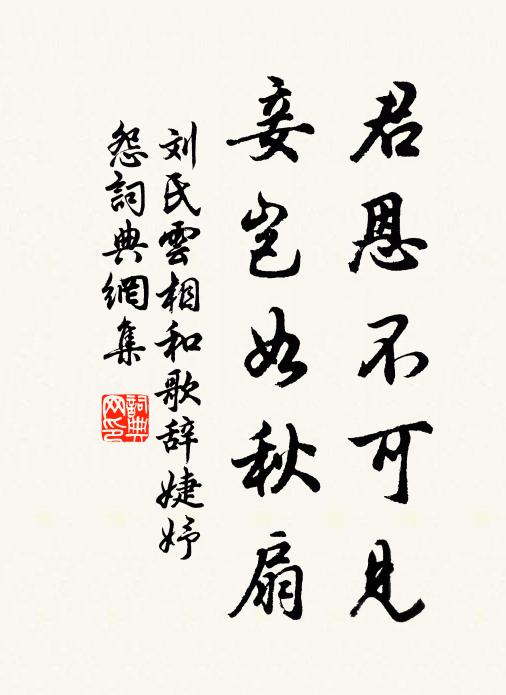 君恩不可见
妾岂如秋扇
刘氏雲相和歌辞婕妤
怨詞典網集
詞典网印